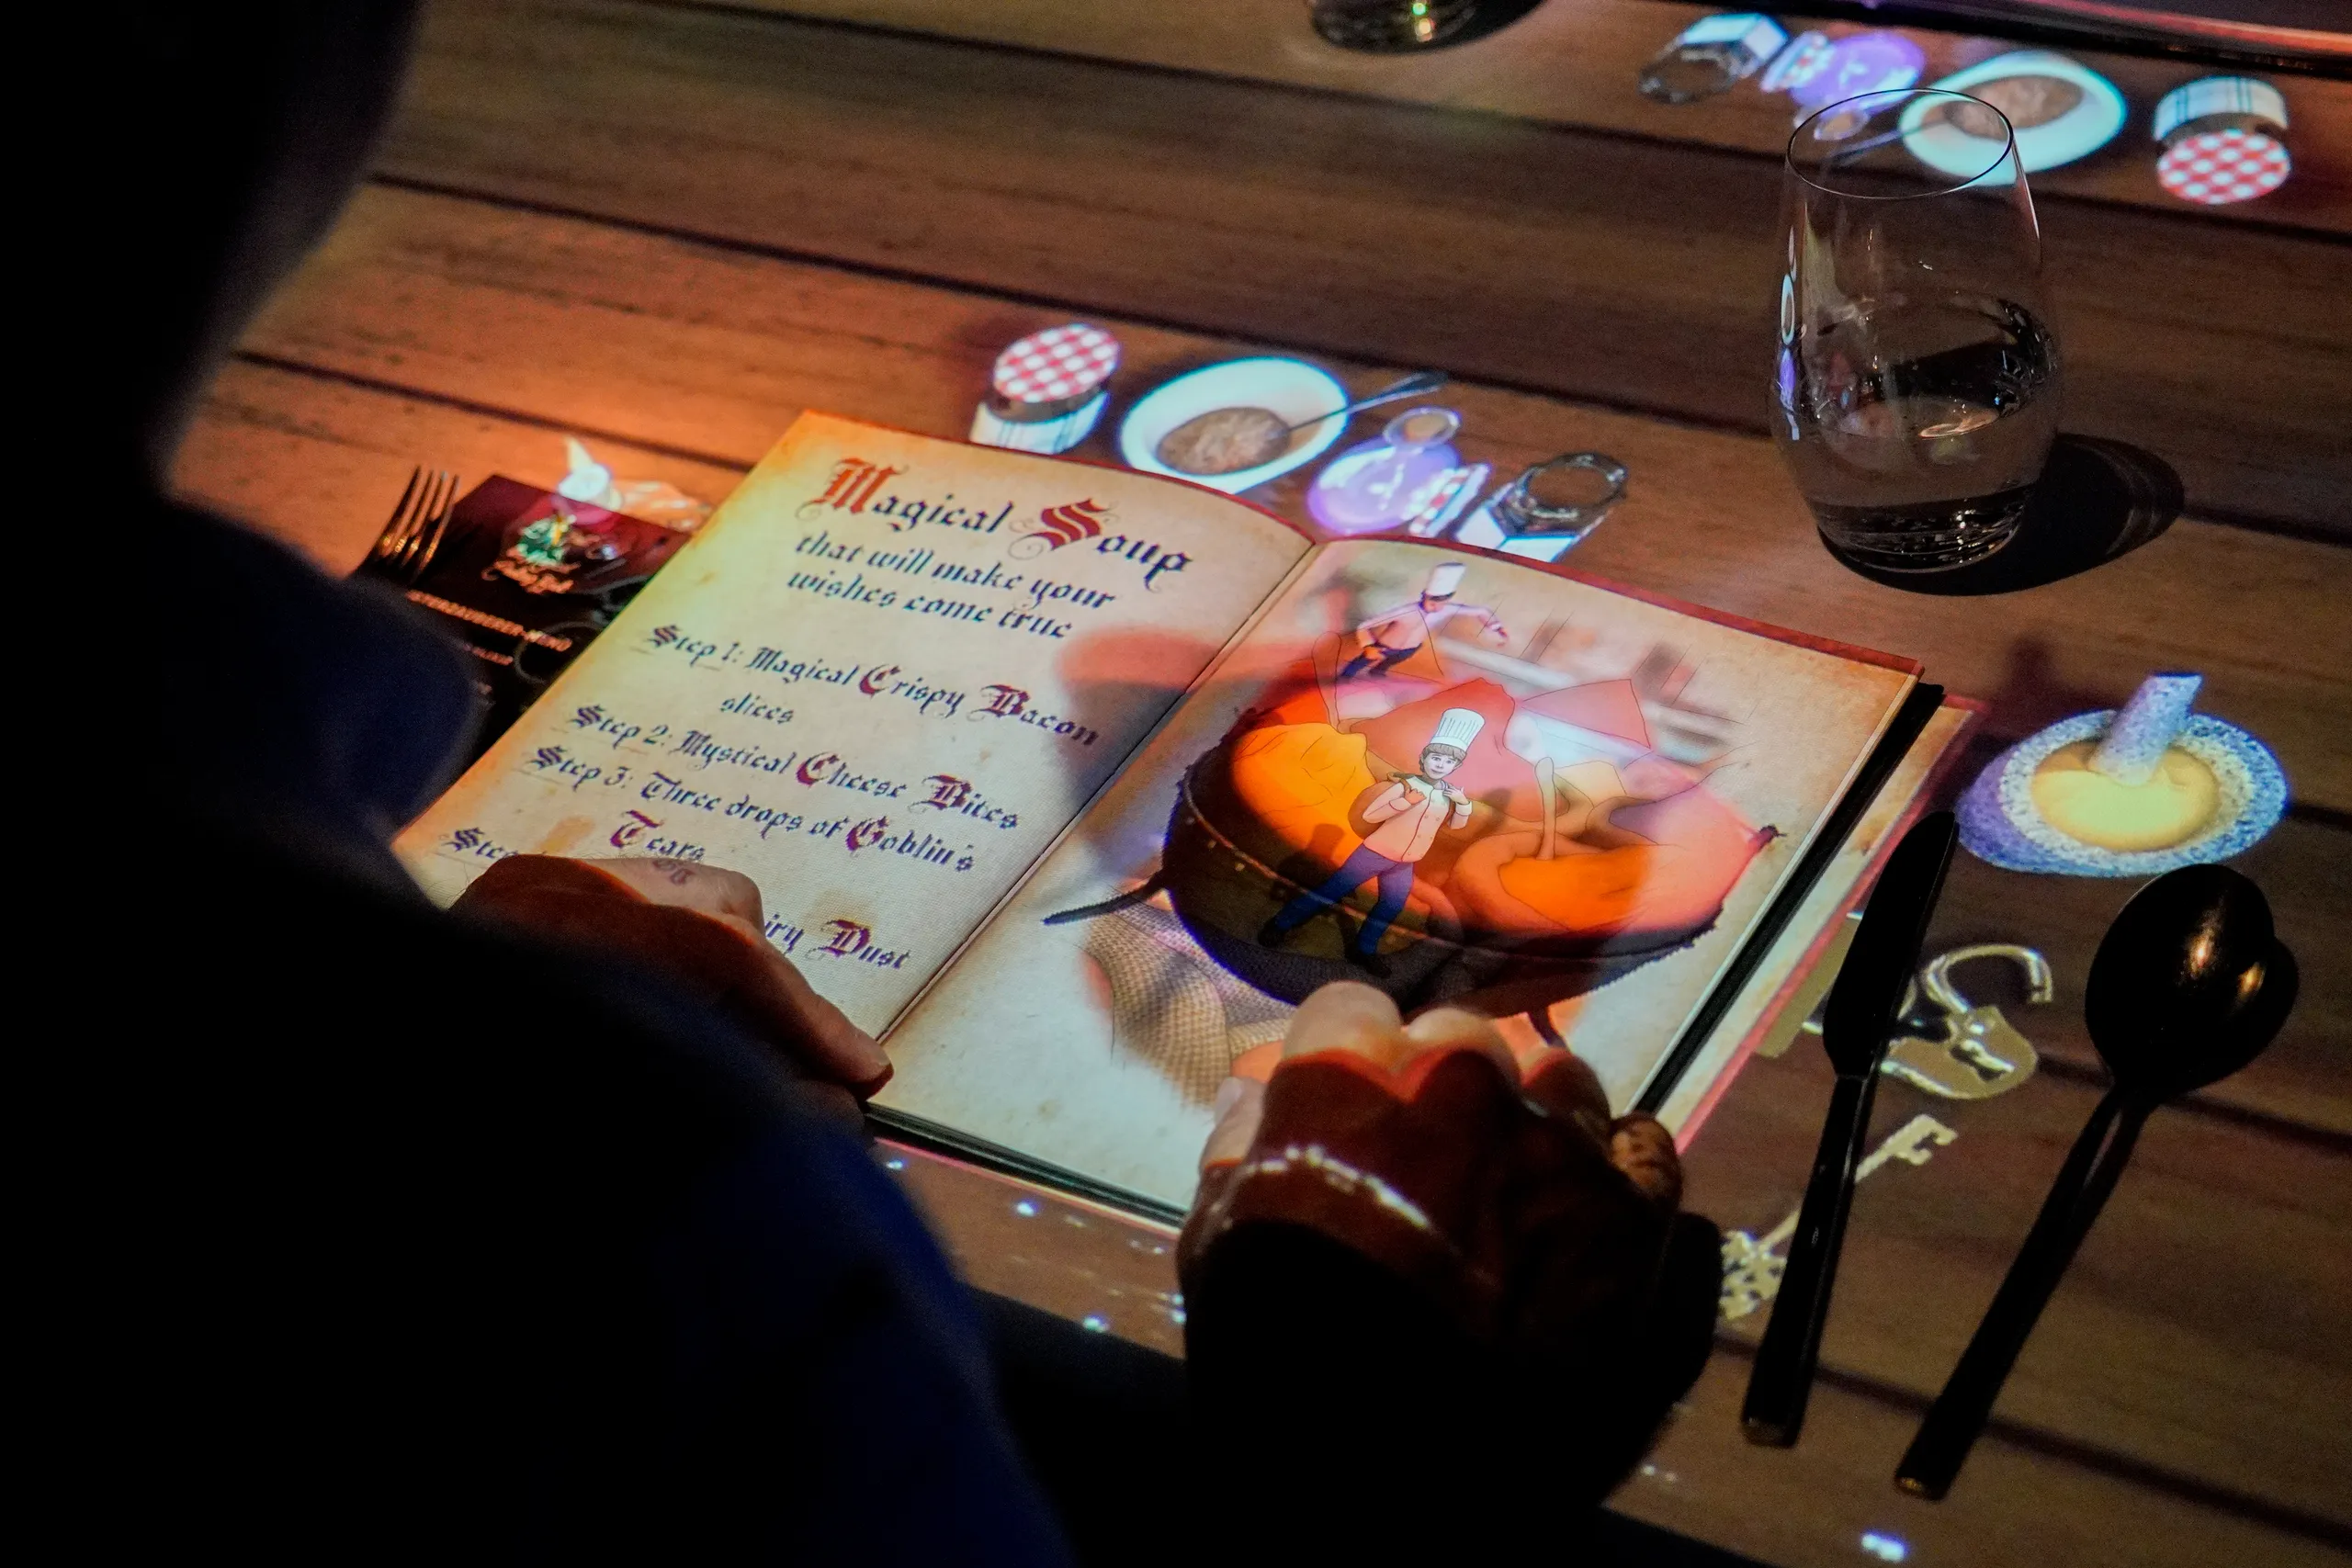 Magical Soup
that will make your
wishes come true
Step 1: Magical Crispy Bacon
slices
Step 2: Mystical Cheese Bites
Step 3: Three drops of Goblin's
Tears
Step
Dust